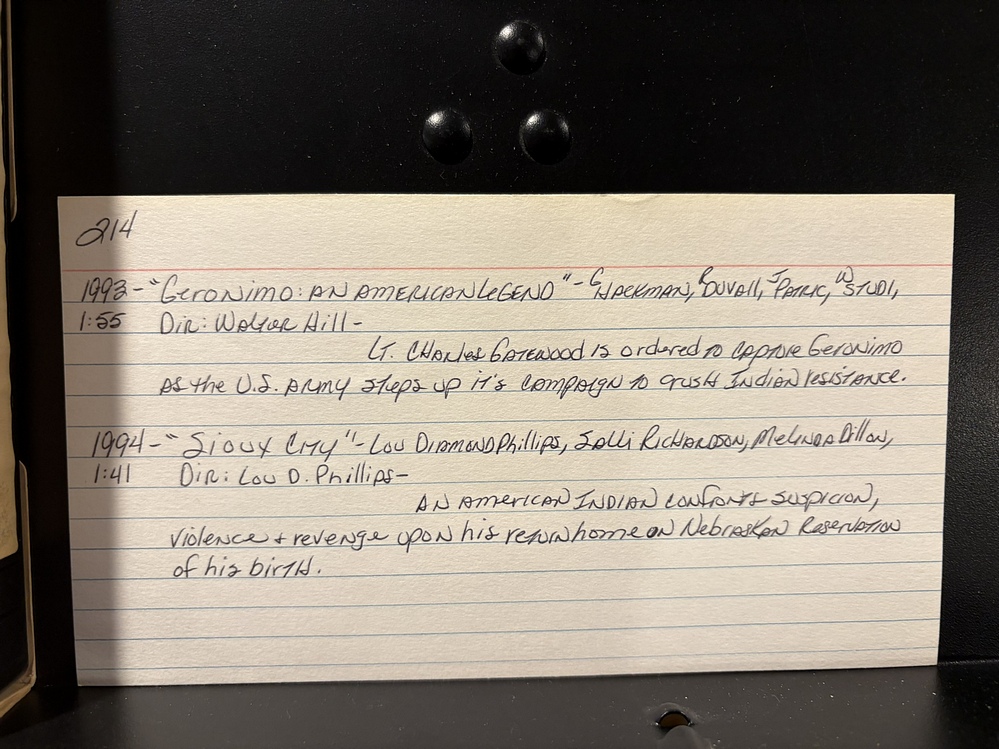 214
1993 - "Geronimo: An American Legend" - G Hackman, R Duvall, J Patric, W Studi,
1:55 Dir: Walter Hill -
Lt. Charles Gatewood is ordered to capture Geronimo
as the U.S. Army steps up it's campaign to crush Indian resistance.
1994 - "Sioux City" - Lou Diamond Phillips, Salli Richardson, Melinda Dillon,
1:41 Dir: Lou D. Phillips -
An American Indian confronts suspicion,
violence + revenge upon his return home on Nebraskan Reservation
of his birth.